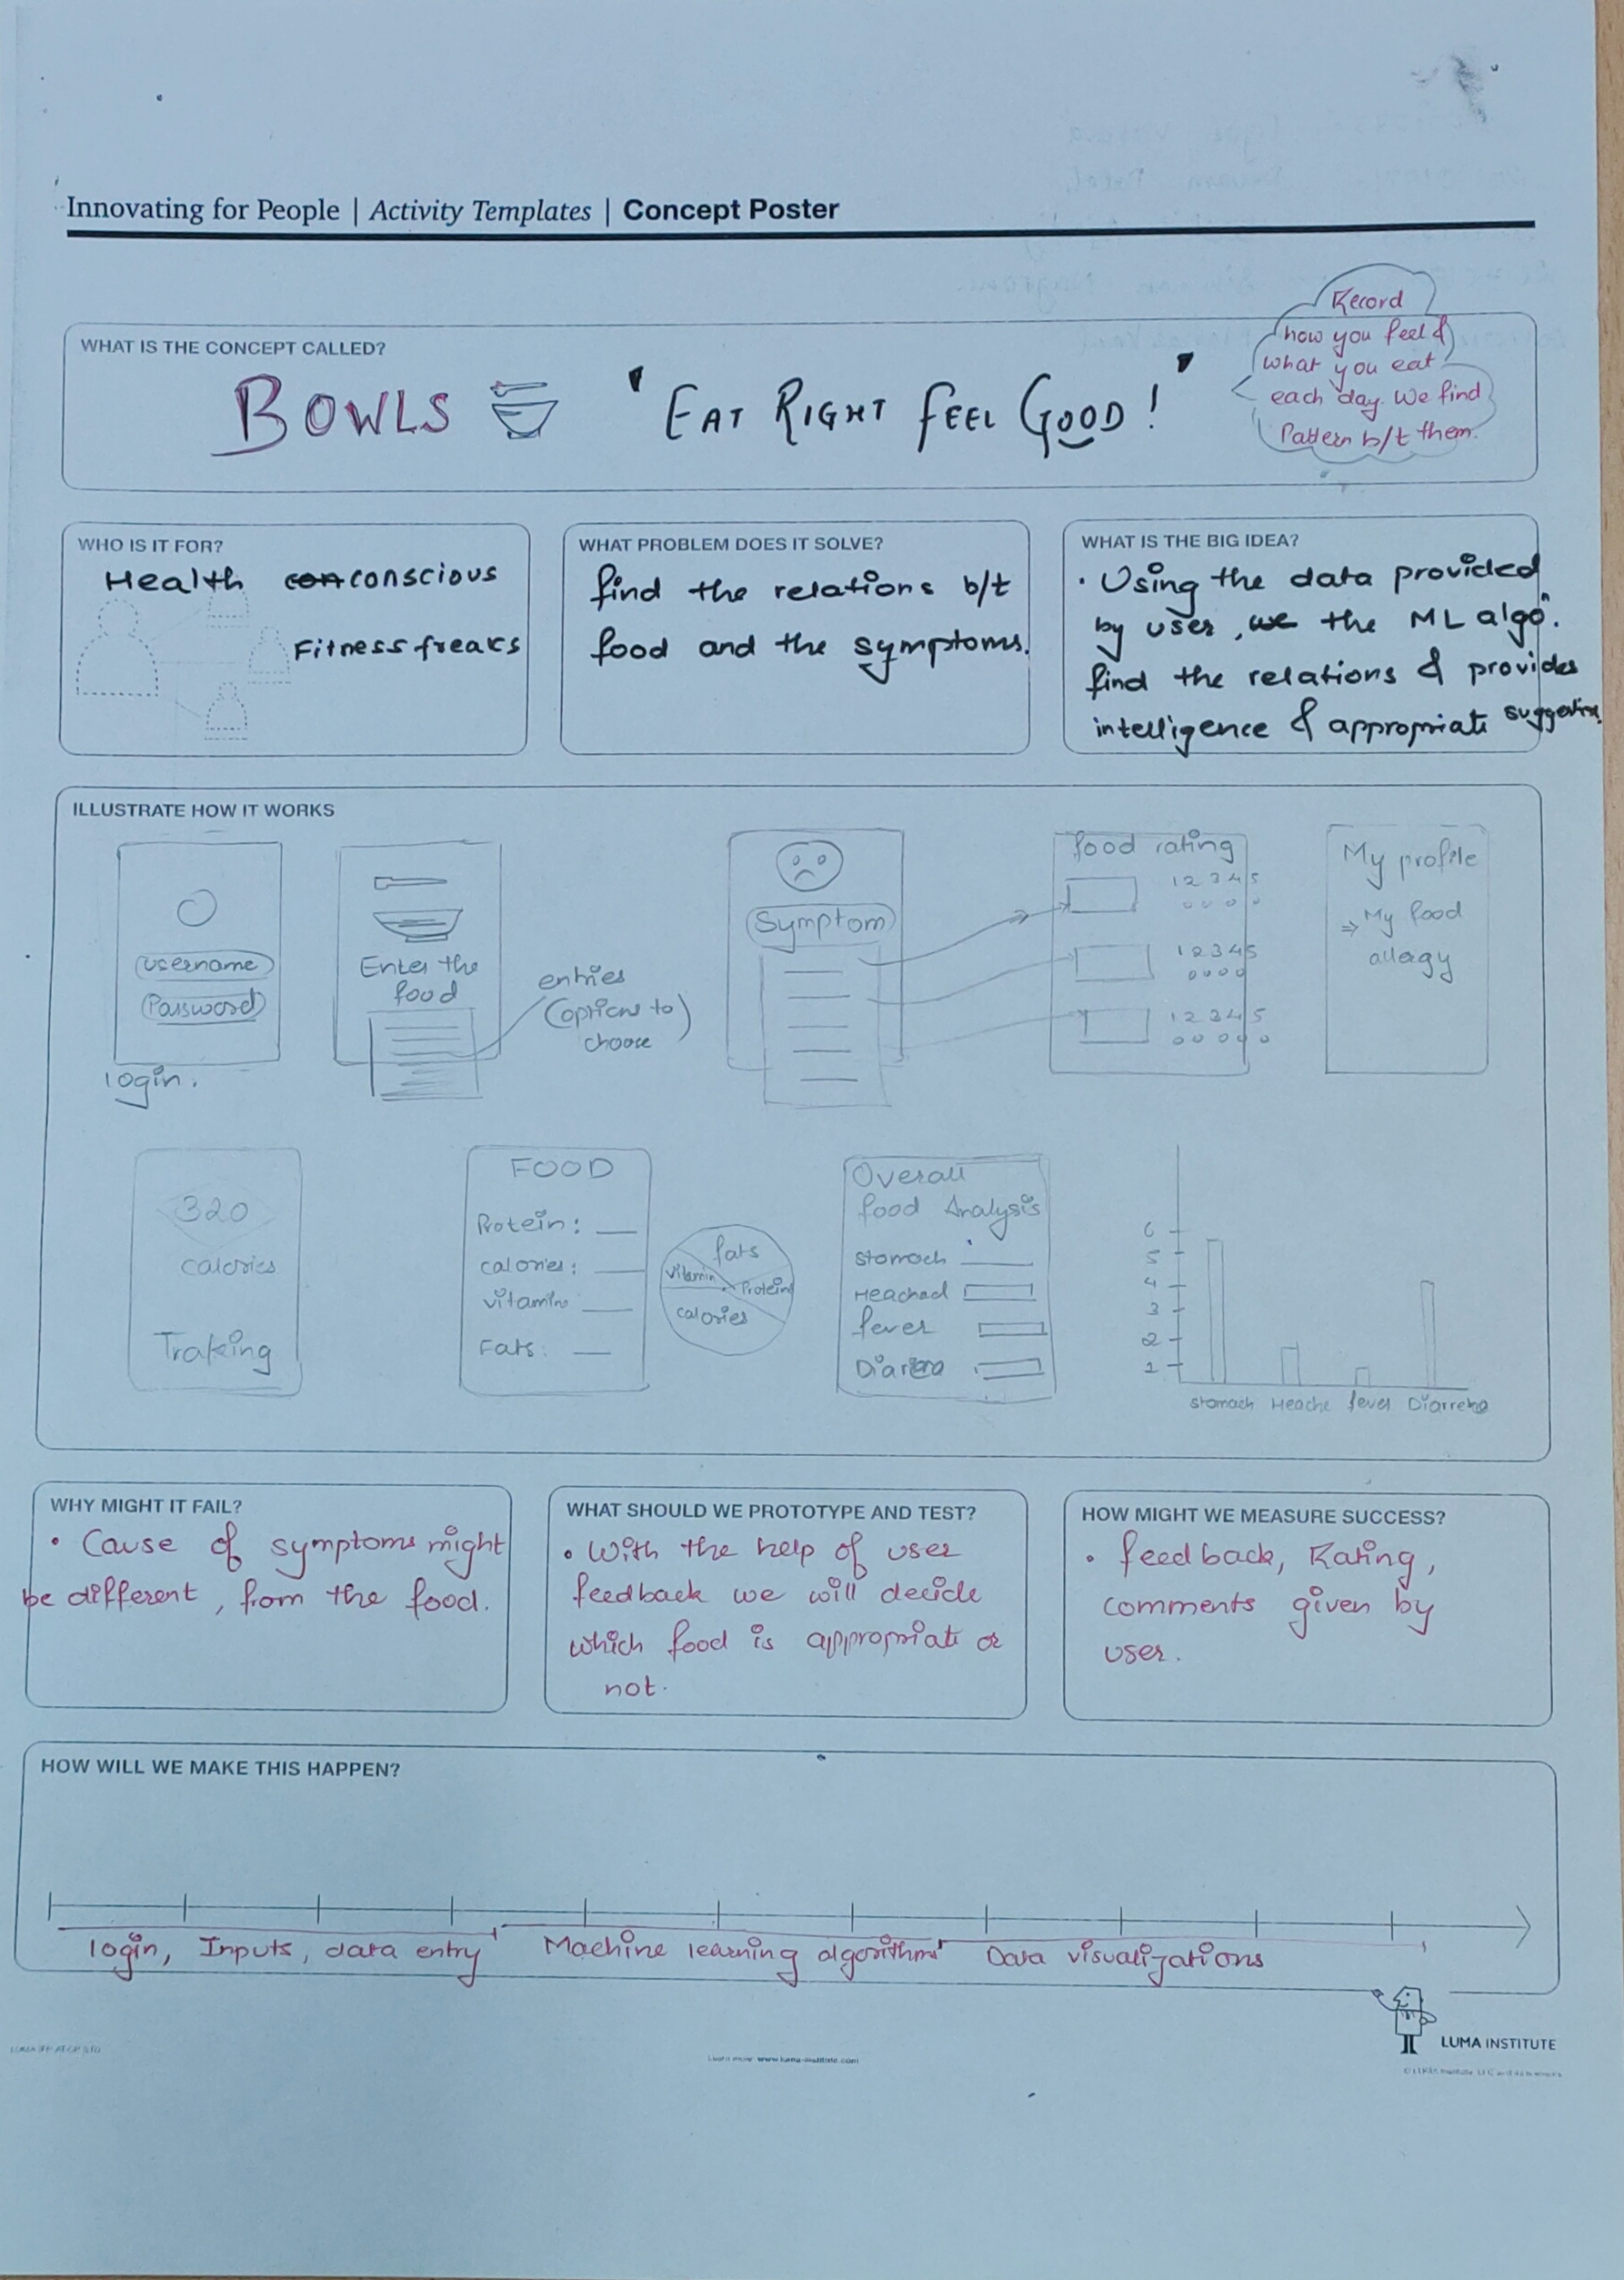 Innovating for People | Activity Templates | Concept Poster
WHAT IS THE CONCEPT CALLED?
BOWLS
'EAT RIGHT FEEL GOOD!'
Record
how you feel &
what you eat
each day. We find
Pattern b/t them.
WHO IS IT FOR?
Health conscious
Fitness freaks
WHAT PROBLEM DOES IT SOLVE?
find the relations b/t
food and the symptoms.
WHAT IS THE BIG IDEA?
• Using the data provided
by user, we the ML algo.
find the relations & provides
intelligence & appropriate
ILLUSTRATE HOW IT WORKS
username
Password
login.
Enter the
food
entries
(options to)
choose
Symptom
food rating
1 2 3 4 5
1 2 3 4 5
1 2 3 4 5
My profile
⇒ My food
allergy
320
calories
Traking
FOOD
Protein:
calories:
vitamins
Fats:
fats
vitamin
Protein
calories
Overall
food Analysis
stomach
Heached
fever
6
5
4
3
2
1
stomach Heache fever Diarreha
WHY MIGHT IT FAIL?
• Cause of symptoms might
be different, from the food.
WHAT SHOULD WE PROTOTYPE AND TEST?
• With the help of user
feedback we will decide
which food is appropriate or
not.
HOW MIGHT WE MEASURE SUCCESS?
• feedback, Rating,
comments given by
user.
HOW WILL WE MAKE THIS HAPPEN?
login, Inputs, data entry
Machine learning algorithms
Data visualizations
LUMA INSTITUTE
Learn more: www.luma-institute.com